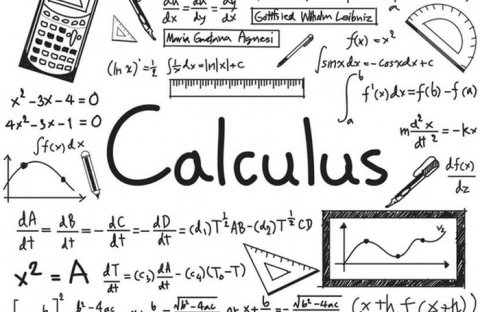 du/dx = dy/dx = dy/dx
Gottfried Wilhelm Leibniz
Maria Gaetana Agnesi
f(x) = x²
(ln x)' = 1/x
∫ 1/x dx = ln|x| + c
∫ sinx dx = -cosx dx + c
∫ₐᵇ f'(x) dx = f(b) - f(a)
x² - 3x - 4 = 0
4x² - 3x - 1 = 0
∫ f(x) dx
Calculus
m d²x/dt² = -kx
df(x)/dz
dA/dt = dB/dt = -dC/dt = -dD/dt = (d₁)T^½ AB - (d₂)T^½ CD
x² = A
dT/dt = (c₃) dA/dt - (c₄)(T₀ - T)
V₂
b² - 4ac
√b² - 4ac
or x + b/ = -√b² - 4ac